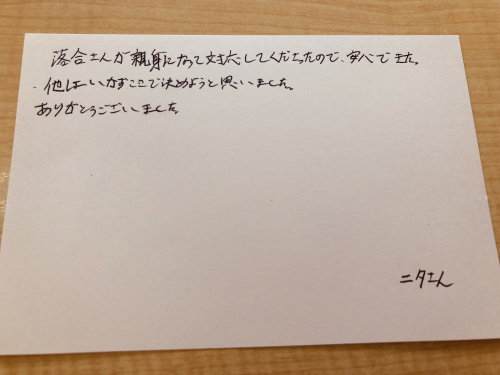 落合さんが親身になって対応してくださったので、すべてできた。
他はいかずここで決めようと思いました。
ありがとうございました
ニタさん